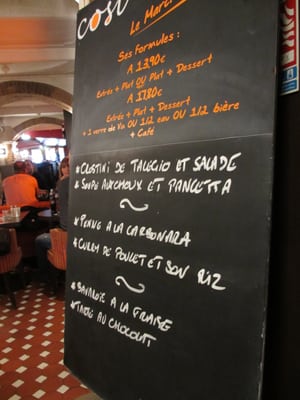 COSI
Le Mardi
Ses Formules :
A 13,90€
Entrée + Plat OU Plat + Dessert
A 17,80€
Entrée + Plat + Dessert
+ 1 verre de Vin OU 1/2 eau OU 1/2 bière
+ Café
* CROSTINI DE TALEGIO ET SALADE
* SOUPE AUX CHOUX ET PANCETTA
~
* PENNE A LA CARBONARA
* CURRY DE POULET ET SON RIZ
~
* BAVAROIS A LA FRAISE
* TARTE AU CHOCOLAT